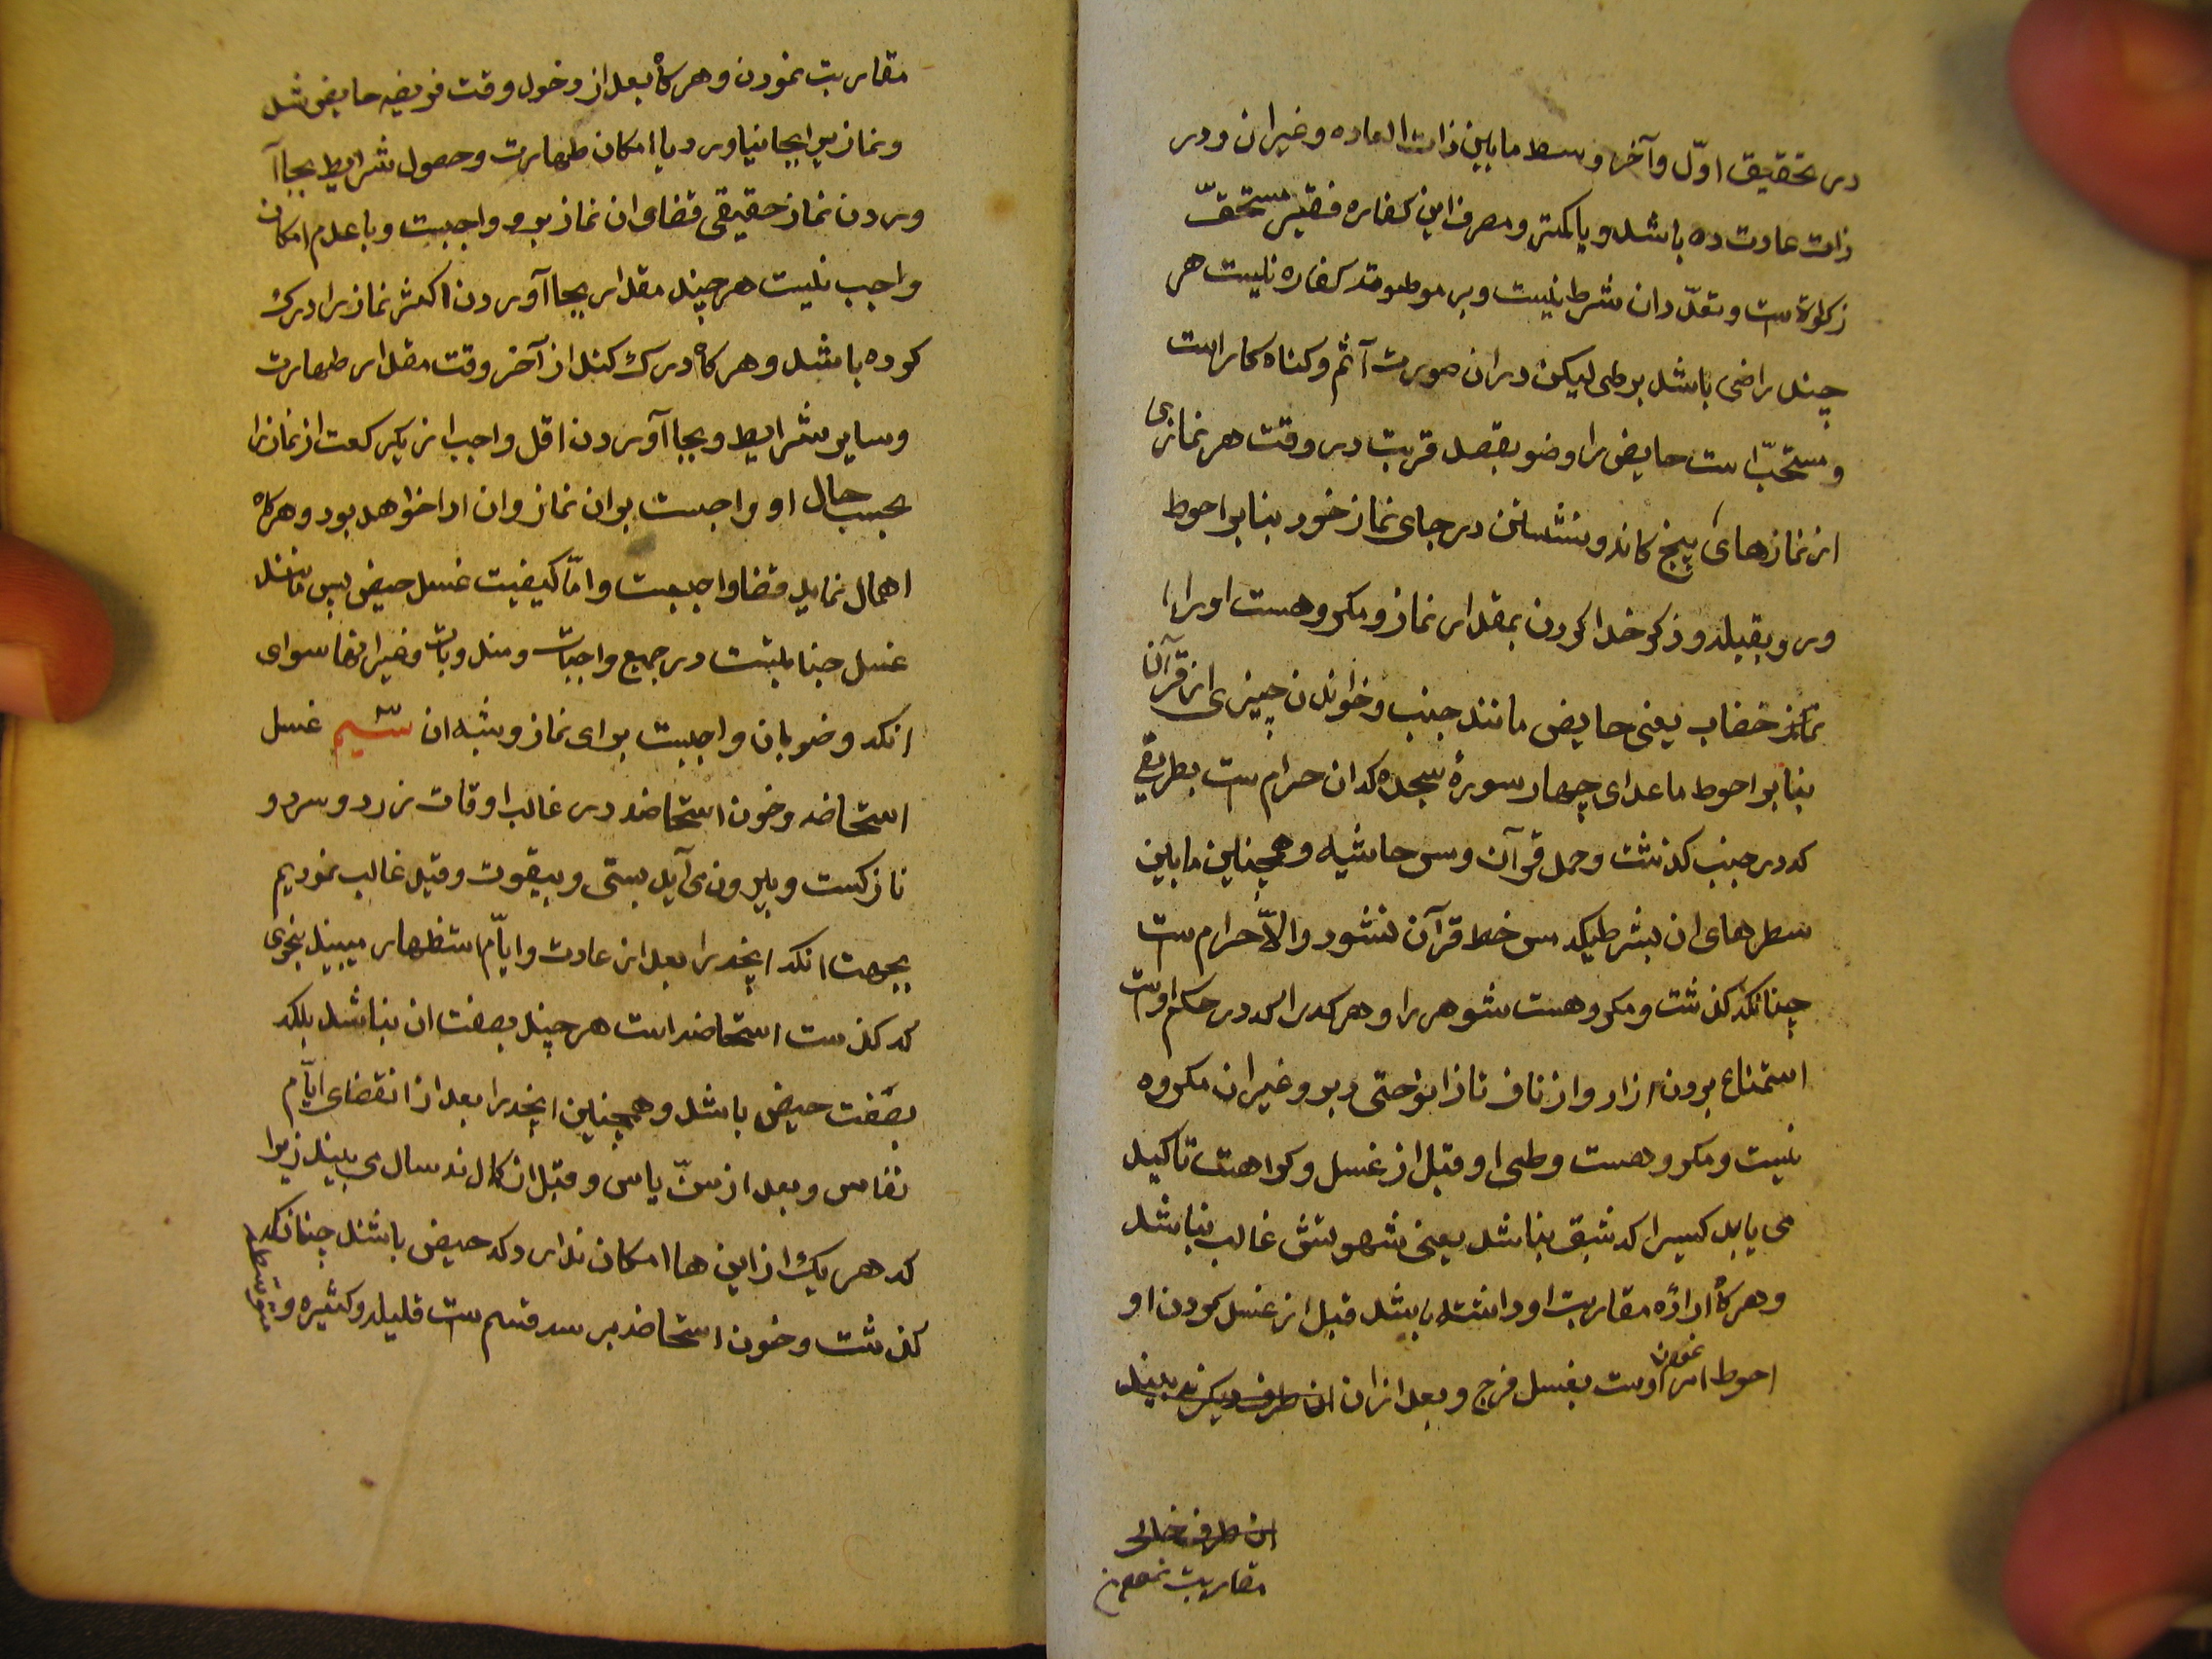 در تحقیق اوّل و آخر و وسط مابین ذات العاده و غیر ان و در
ذات عادت ده باشد و یا کمتر و مصرف این کفاره فقیر مستحقّ
زکوة است و تعدّد ان شرط نیست و بر موطوئه کفاره نیست هر
چند راضی باشد بوطی لیکن در ان صورت آثم و کناه کار است
و مستحبّ است حایض را وضو بقصد قربت در وقت هر نمازی
از نمازهای پنج کانه و نشستن در جای نماز خود بنا بر احوط
و رو بقبله و ذکر خدا کردن بمقدار نماز و مکروهست او را
خضاب یعنی حایض مانند جنب و خواندن چیزی از قرآن
بنا بر احوط ماعدای چهار سورهٔ سجده که ان حرام است بطریقی
که در جنب کذشت و حمل قرآن و مس حاشیه و همچنین مابین
سطرهای ان بشرطیکه مس خط قرآن نشود و الاّ حرام است
چنانکه کذشت و مکروهست شوهر را و هر که را که در حکم اوست
استمتاع بردن از او از ناف تا زانو حتی دبر و غیر ان مکروه
نیست و مکروهست وطی او قبل از غسل و کراهت تاکید
می یابد کسیرا که شبق نباشد یعنی شهوتش غالب نباشد
و هرکاه ارادهٔ مقاربت او داشته باشد قبل از غسل کردن او
احوط امر نمودن اوست بغسل فرج و بعد از ان ان طرف دیکر به بیند
ان طرف خالی
مقاربت نمودن
مقاربت نمودن و هرکاه بعد از دخول وقت فریضه حایض شد
و نماز را بجا نیاورد با امکان طهارت و حصول شرایط بجا آ
وردن نماز حقیقی قضای ان نماز بر او واجبست و با عدم امکان
واجب نیست هر چند مقدار بجا آوردن اکثر نماز را درک
کرده باشد و هرکاه درک کند از آخر وقت مقدار طهارت
و سایر شرایط و بجا آوردن اقل واجب از یک رکعت از نماز را
بحسب حال او واجبست بر ان نماز و ان ادا خواهد بود و هرکاه
اهمال نماید قضا واجبست و امّا کیفیت غسل حیض پس مانند
غسل جنابتست در جمیع واجبات و مندوبات و غیر انها سوای
انکه وضو بان واجبست برای نماز و شبه ان سیّم غسل
استحاضه و خون استحاضه در غالب اوقات زرد و سرد و
نازکست و بیرون می آید بستی و بیقوت و قید غالب نمودیم
بجهت انکه انچه را بعد از عادت و ایّام استظهار میبیند بنحوی
که کذشت استحاضه است هر چند بصفت ان نباشد بلکه
بصفت حیض باشد و همچنین انچه را بعد از انقضای ایّام
نفاس و بعد از سنّ یاس و قبل از کمال نه سال می بیند زیرا
که هر یک از این ها امکان ندارد که حیض باشند چنانکه
کذشت و خون استحاضه بر سه قسم ست قلیله و کثیره و متوسطه